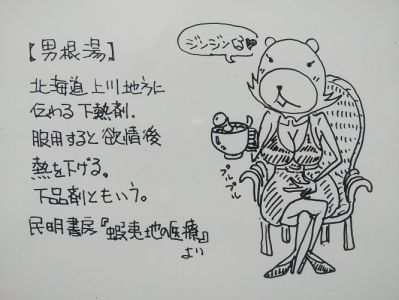 【男根湯】
北海道上川地方に
伝わる下熱剤.
服用すると欲情後
熱を下げる。
下品剤ともいう。
民明書房『蝦夷地の医療』
より
ジンジンなの
プルプル